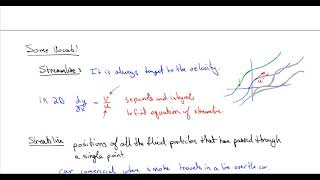 Some Vocab!
Streamline: It is always tangent to the velocity.
in 2D dy/dx = v/u separate and integrate
to find equation of streamline
Streakline positions of all the fluid particles that have passed through
a single point
car commercial where smoke travels in a line over the car.